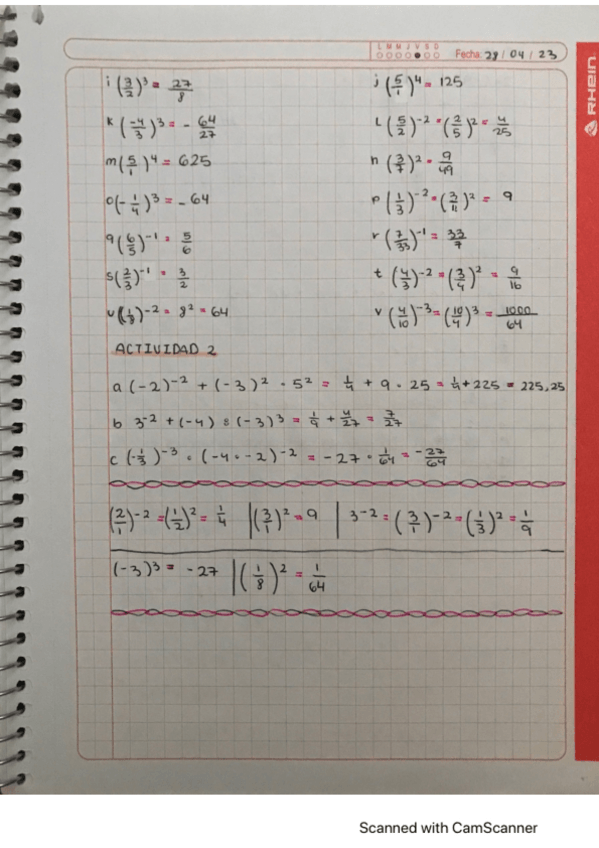 L M M J V S D
Fecha: 28 / 04 / 23
RHEIN®
i (3/2)³ = 27/8 j (5/1)⁴ = 125
k (-4/3)³ = - 64/27 l (5/2)⁻² = (2/5)² = 4/25
m (5/1)⁴ = 625 n (3/7)² = 9/49
o (- 1/4)³ = - 64 p (1/3)⁻² = (3/1)² = 9
q (6/5)⁻¹ = 5/6 r (7/33)⁻¹ = 33/7
s (2/3)⁻¹ = 3/2 t (4/3)⁻² = (3/4)² = 9/16
u (1/8)⁻² = 8² = 64 v (4/10)⁻³ = (10/4)³ = 1000/64
ACTIVIDAD 2
a (-2)⁻² + (-3)² · 5² = 1/4 + 9 · 25 = 1/4 + 225 = 225,25
b 3⁻² + (-4) : (-3)³ = 1/9 + 4/27 = 7/27
c (-1/3)⁻³ · (-4 · -2)⁻² = -27 · 1/64 = - 27/64
(2/1)⁻² = (1/2)² = 1/4 | (3/1)² = 9 | 3⁻² = (3/1)⁻² = (1/3)² = 1/9
(-3)³ = -27 | (1/8)² = 1/64
Scanned with CamScanner